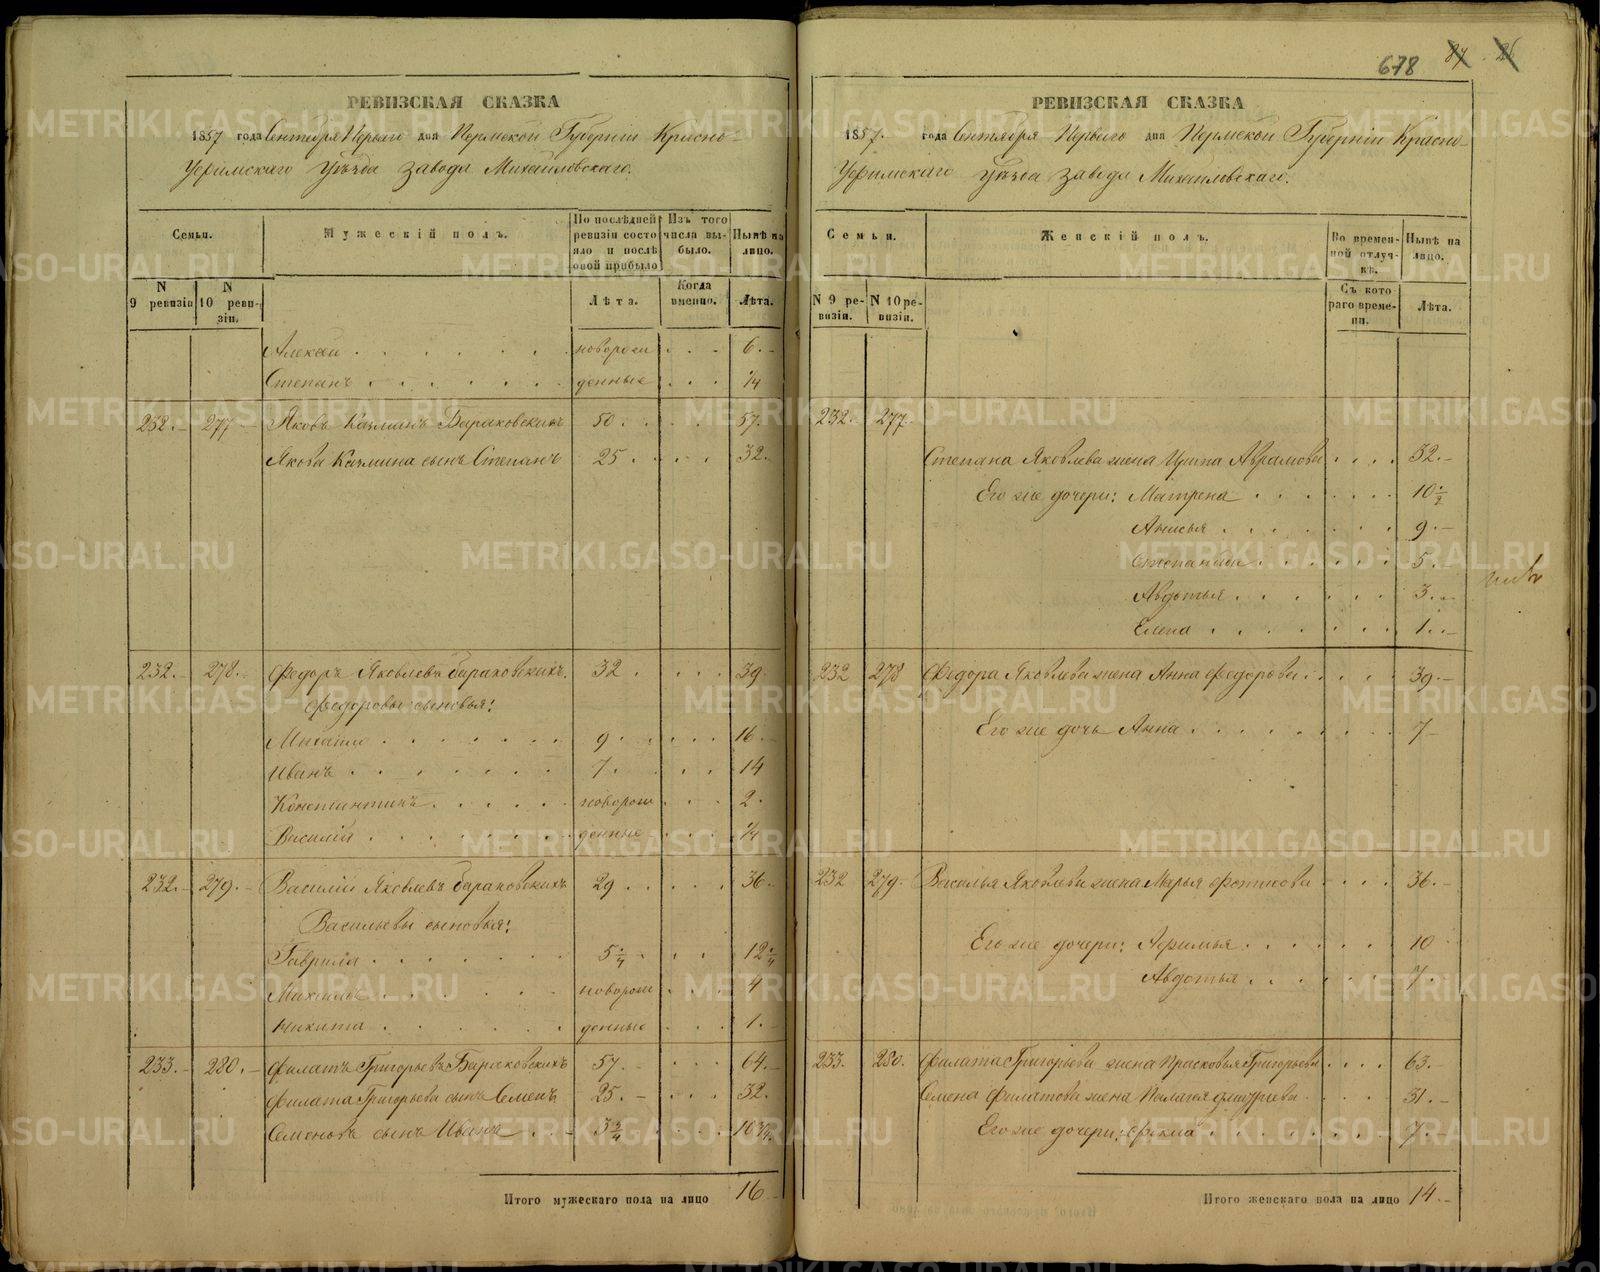 678 87 26
РЕВИЗСКАЯ СКАЗКА
1857 года Сентября Перваго дня Пермской Губерніи Красно-
Уфимскаго Уѣзда завода Михайловскаго.
Семьи. Мужескій полъ. По послѣдней ревизіи состояло и послѣ оной прибыло Изъ того числа выбыло. Нынѣ на лицо.
N 9 ревизіи N 10 ревизіи. Лѣта. Когда именно. Лѣта.
Алексей новорож 6.
Степанъ денные 1/4
232. 277 Яковъ Барановскихъ 50 57.
Якова сынъ Степанъ 25 32.
232. 278. Федоръ Яковлевъ Барановскихъ. 32 39
Федоровы сыновья:
Михайло 9 16
Иванъ 7 14
Константинъ новорож 2.
Василій денные 1/4
232. 279. Василій Яковлевъ Барановскихъ 29 36.
Васильевы сыновья:
Гаврила 5 1/4 12 1/4
Михаилъ новорож 4
Никита денные 1.
233. 280. Филатъ Григорьевъ Барановскихъ 57. 64.
Филата Григорьева сынъ Семенъ 25. 32.
Семеновъ сынъ Иванъ 3 3/4 10 3/4
Итого мужескаго пола на лицо 16
РЕВИЗСКАЯ СКАЗКА
1857. года Сентября Перваго дня Пермской Губерніи Красно-
Уфимскаго Уѣзда завода Михайловскаго.
Семьи. Женскій полъ. Во временной отлучкѣ. Нынѣ на лицо.
N 9 ревизіи. N 10 ревизіи. Съ котораго времени. Лѣта.
232. 277.
Степана Яковлева жена Аврамова 32.
Его же дочери: Матрена 10 1/2
Анисья 9.
Степанида 5.
Авдотья 3.
Елена 1.
232 278 Федора Яковлева жена Анна Федорова 39.
Его же дочь Анна 7
232 279. Василья Яковлева жена Марья 36.
Его же дочери: Афимья 10
Авдотья 7.
233. 280. Филата Григорьева жена Прасковья Григорьева 63.
Семена Филатова жена Палагея 31.
Его же дочери: Фекла 7.
Итого женскаго пола на лицо 14.
METRIKI.GASO-URAL.RU